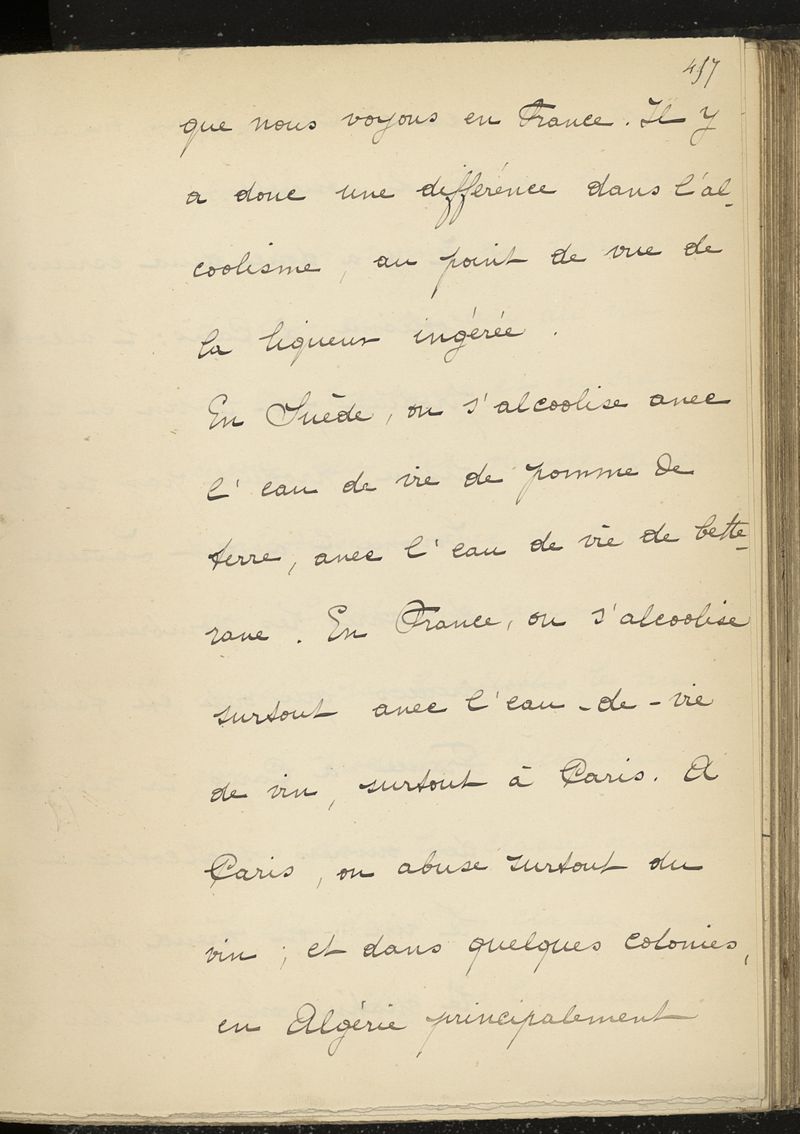 457
que nous voyons en France. Il y
a donc une différence dans l'al-
coolisme, au point de vue de
la liqueur ingérée.
En Suède, on s'alcoolise avec
l'eau de vie de pomme de
terre, avec l'eau de vie de bette-
rave. En France, on s'alcoolise
surtout avec l'eau-de-vie
de vin, surtout à Paris. A
Paris, on abuse surtout du
vin ; et dans quelques colonies,
en Algérie principalement